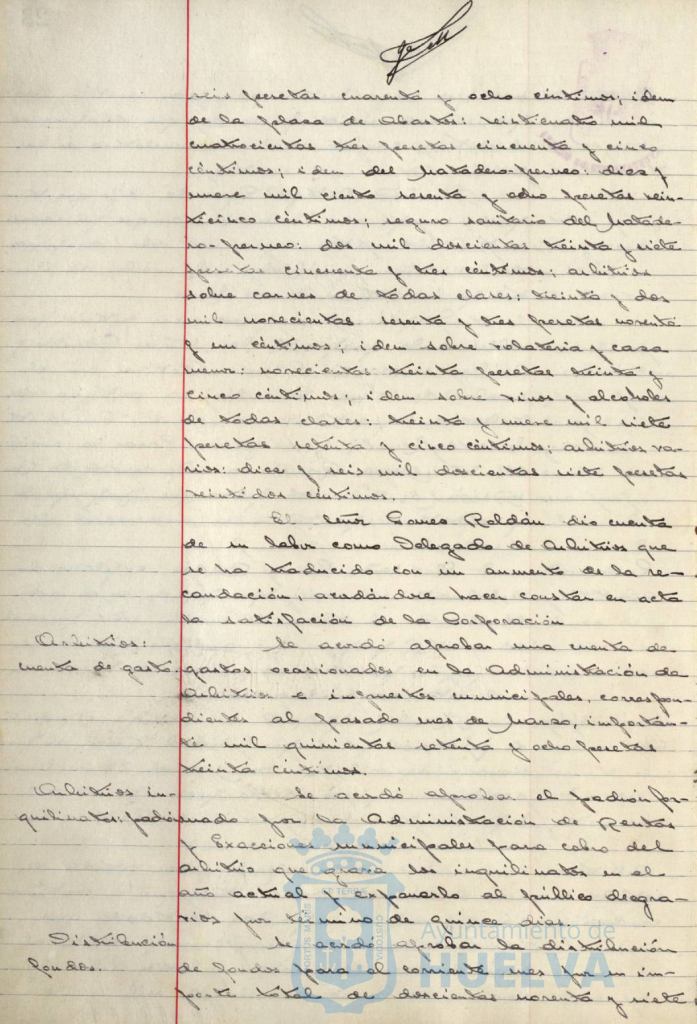 seis pesetas cuarenta y ocho céntimos; idem
de la plaza de Abastos: veinticuatro mil
cuatrocientas tres pesetas cincuenta y cinco
céntimos; idem del Matadero-perneo: diez y
nueve mil ciento sesenta y ocho pesetas vein-
ticinco céntimos; seguro sanitario del Matade-
ro-perneo: dos mil doscientas treinta y siete
pesetas cincuenta y tres céntimos; arbitrios
sobre carnes de todas clases: treinta y dos
mil novecientas sesenta y tres pesetas noventa
y un céntimos; idem sobre volateria y caza
menor: novecientas treinta pesetas treinta y
cinco céntimos; idem sobre vinos y alcoholes
de todas clases: treinta y nueve mil siete
pesetas setenta y cinco céntimos; arbitrios va-
rios: diez y seis mil doscientas siete pesetas
veintidos céntimos.
El señor Gomez Roldán dio cuenta
de su labor como Delegado de Arbitrios que
se ha traducido con un aumento de la re-
caudación, acordándose hacer constar en acta
la satisfación de la Corporación
Arbitrios: Se acordó aprobar una cuenta de
cuenta de gasto. gastos ocasionados en la Administración de
Arbitrios e impuestos municipales, correspon-
dientes al pasado mes de Marzo, importan-
te mil quinientas setenta y ocho pesetas
treinta céntimos.
Arbitrios in- Se acordó aprobar el padrón for-
quilinatos: padrón mado por la Administración de Rentas
y Exacciones municipales para cobro del
arbitrio que grava los inquilinatos en el
año actual y exponerlo al público
por término de quince dias.
Distribución Se acordó aprobar la distribución
fondos. de fondos para el corriente mes por un im-
porte total de doscientas noventa y siete
Ayuntamiento de
HUELVA